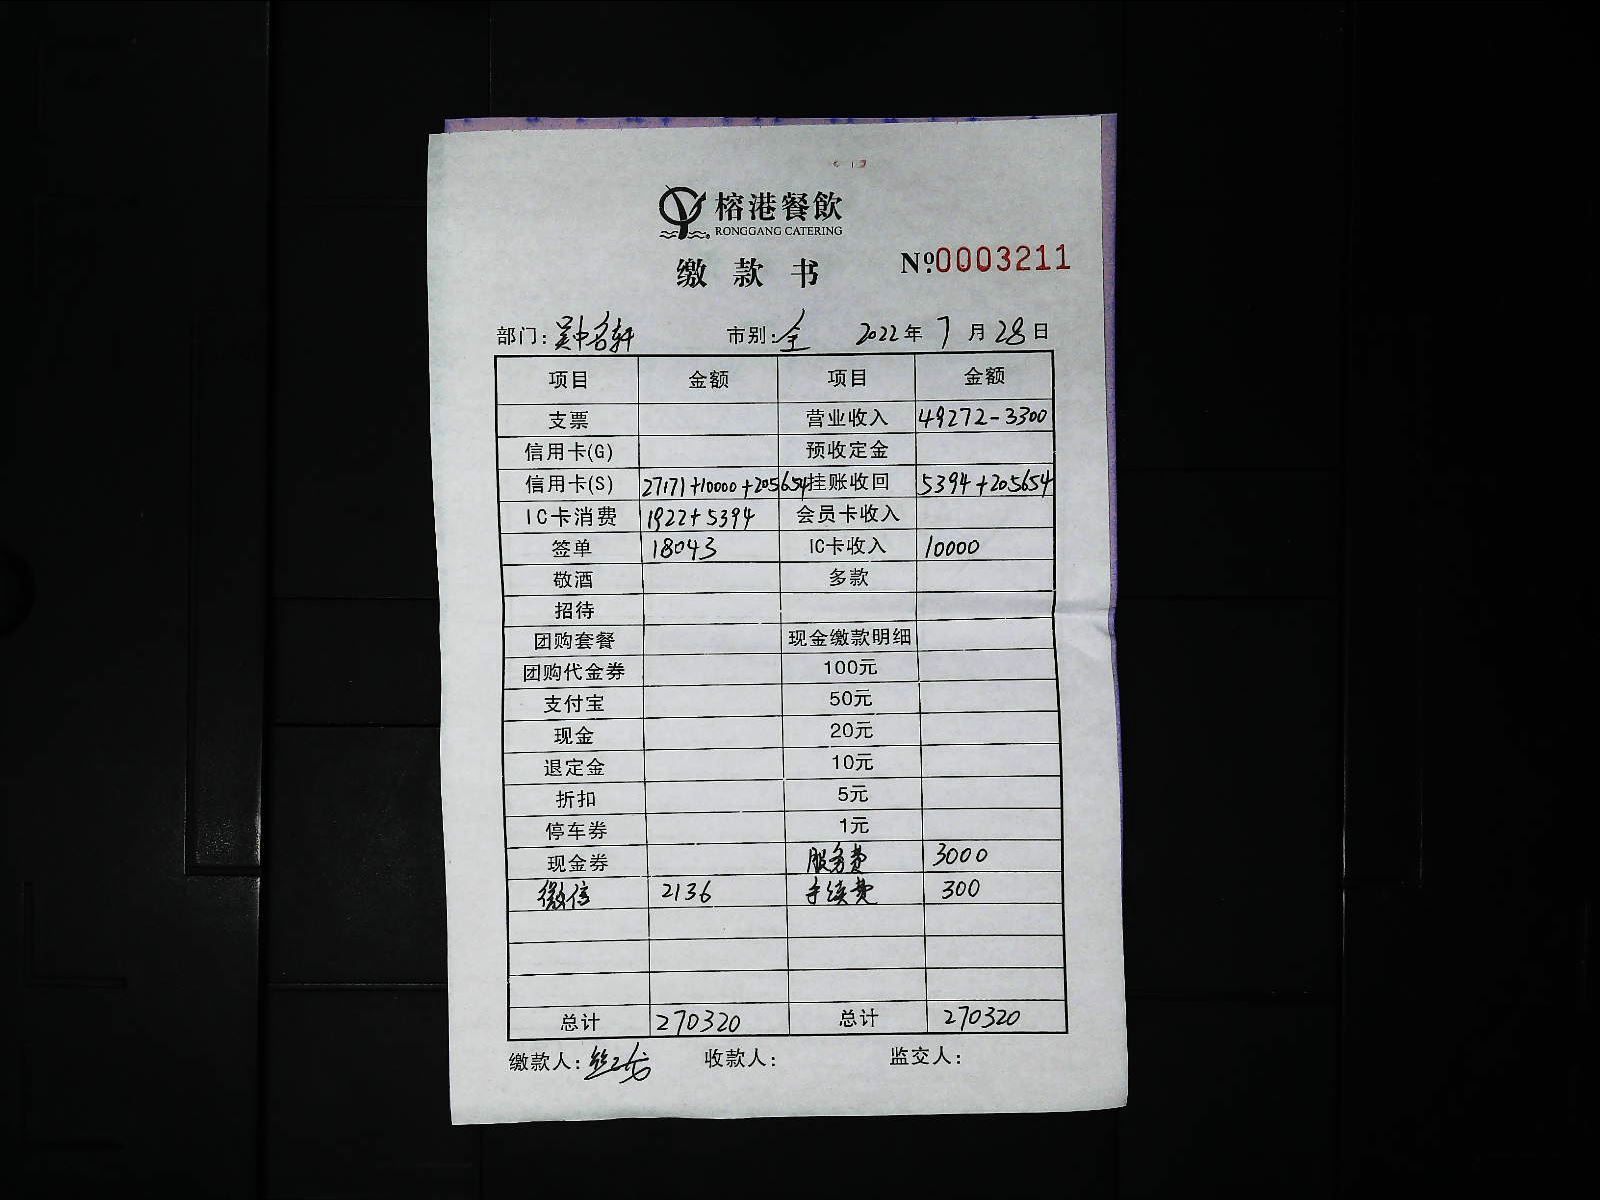 榕港餐飲
RONGGANG CATERING
缴款书 №0003211
部门: 吴中名轩 市别: 全 2022年7月28日
项目 金额 项目 金额
支票 营业收入 49272-3300
信用卡(G) 预收定金
信用卡(S) 27171+10000+205654 挂账收回 5394+205654
IC卡消费 1922+5394 会员卡收入
签单 18043 IC卡收入 10000
敬酒 多款
招待
团购套餐 现金缴款明细
团购代金券 100元
支付宝 50元
现金 20元
退定金 10元
折扣 5元
停车券 1元
现金券 服务费 3000
微信 2136 手续费 300
总计 270320 总计 270320
缴款人: 收款人: 监交人: